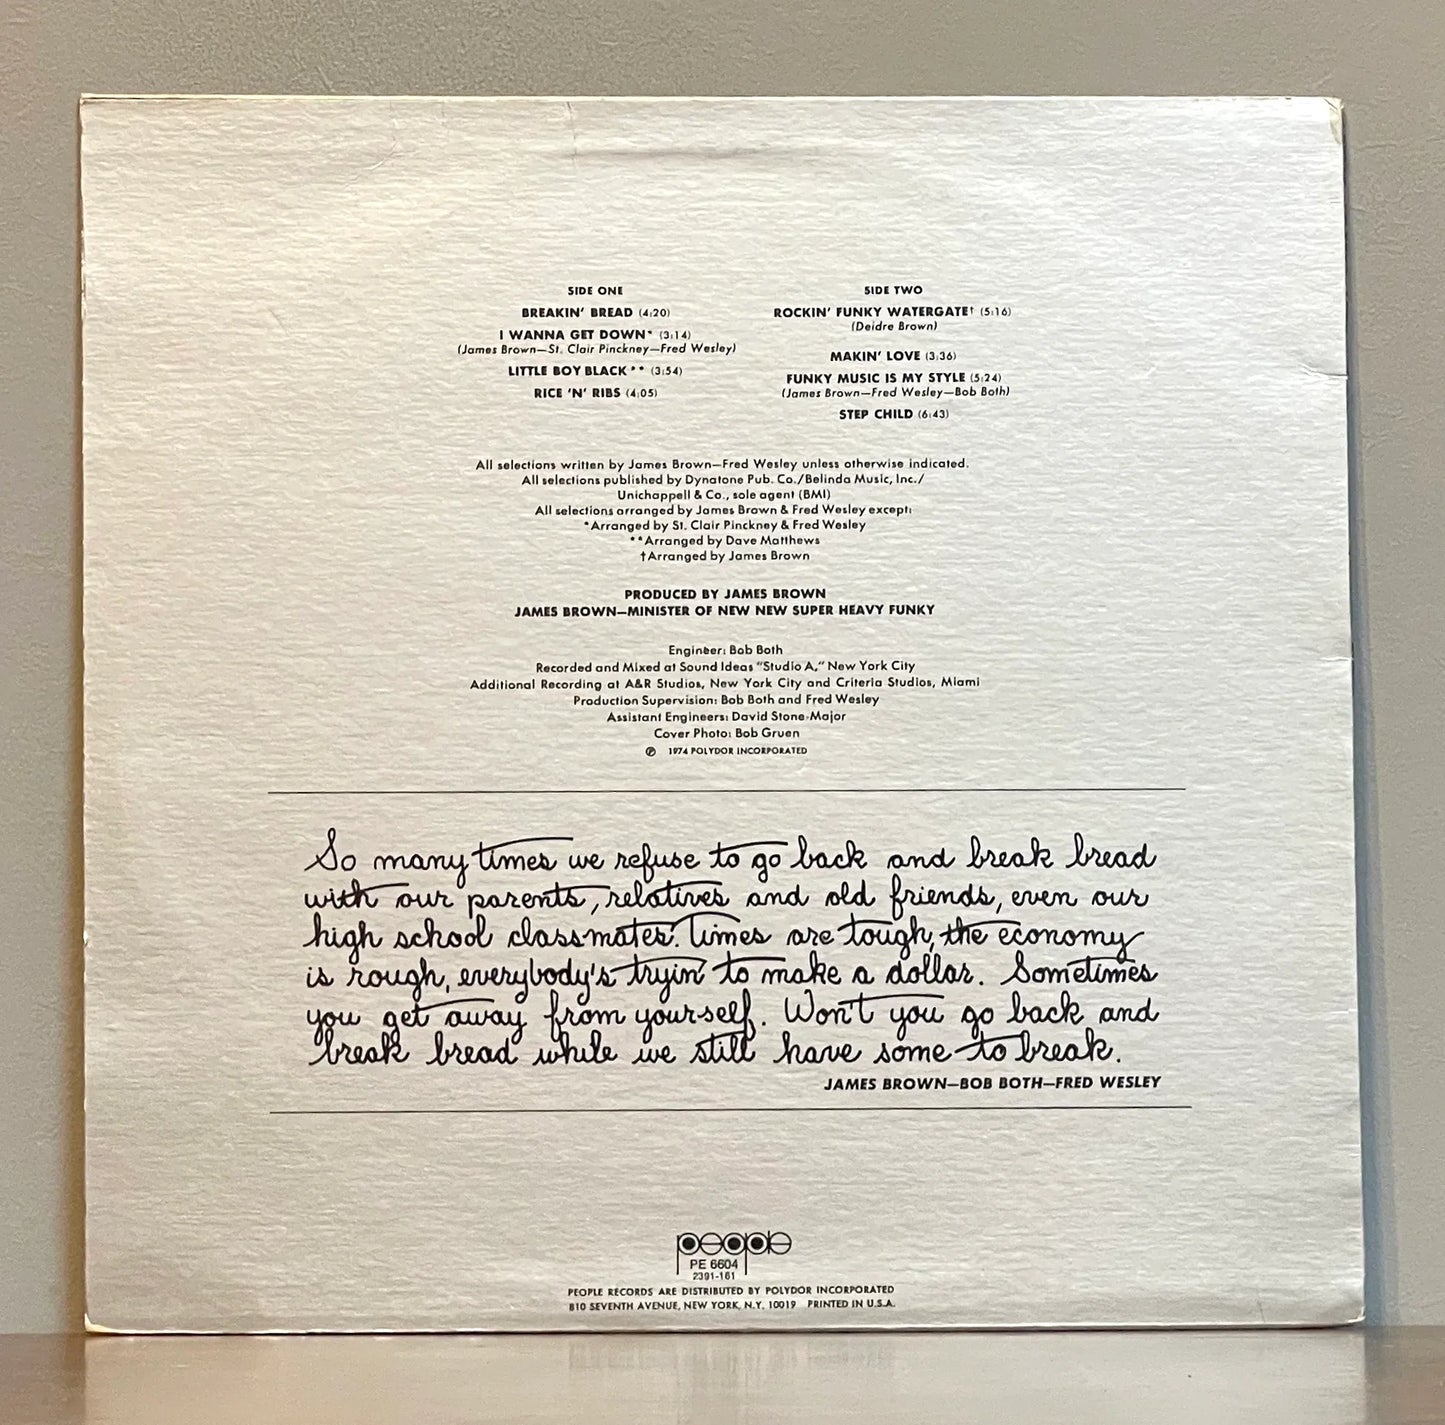 SIDE ONE
BREAKIN' BREAD (4:20)
I WANNA GET DOWN* (3:14)
(James Brown—St. Clair Pinckney—Fred Wesley)
LITTLE BOY BLACK** (3:54)
RICE 'N' RIBS (4:05)
SIDE TWO
ROCKIN' FUNKY WATERGATE† (5:16)
(Deidre Brown)
MAKIN' LOVE (3:36)
FUNKY MUSIC IS MY STYLE (5:24)
(James Brown—Fred Wesley—Bob Both)
STEP CHILD (6:43)
All selections written by James Brown—Fred Wesley unless otherwise indicated.
All selections published by Dynatone Pub. Co./Belinda Music, Inc./
Unichappell & Co., sole agent (BMI)
All selections arranged by James Brown & Fred Wesley except:
*Arranged by St. Clair Pinckney & Fred Wesley
**Arranged by Dave Matthews
†Arranged by James Brown
PRODUCED BY JAMES BROWN
JAMES BROWN—MINISTER OF NEW NEW SUPER HEAVY FUNKY
Engineer: Bob Both
Recorded and Mixed at Sound Ideas "Studio A," New York City
Additional Recording at A&R Studios, New York City and Criteria Studios, Miami
Production Supervision: Bob Both and Fred Wesley
Assistant Engineers: David Stone-Major
Cover Photo: Bob Gruen
℗ 1974 POLYDOR INCORPORATED
So many times we refuse to go back and break bread
with our parents, relatives and old friends, even our
high school classmates. Times are tough, the economy
is rough, everybody's tryin' to make a dollar. Sometimes
you get away from yourself. Won't you go back and
break bread while we still have some to break.
JAMES BROWN—BOB BOTH—FRED WESLEY
people
PE 6604
2391-161
PEOPLE RECORDS ARE DISTRIBUTED BY POLYDOR INCORPORATED
810 SEVENTH AVENUE, NEW YORK, N.Y. 10019 PRINTED IN U.S.A.